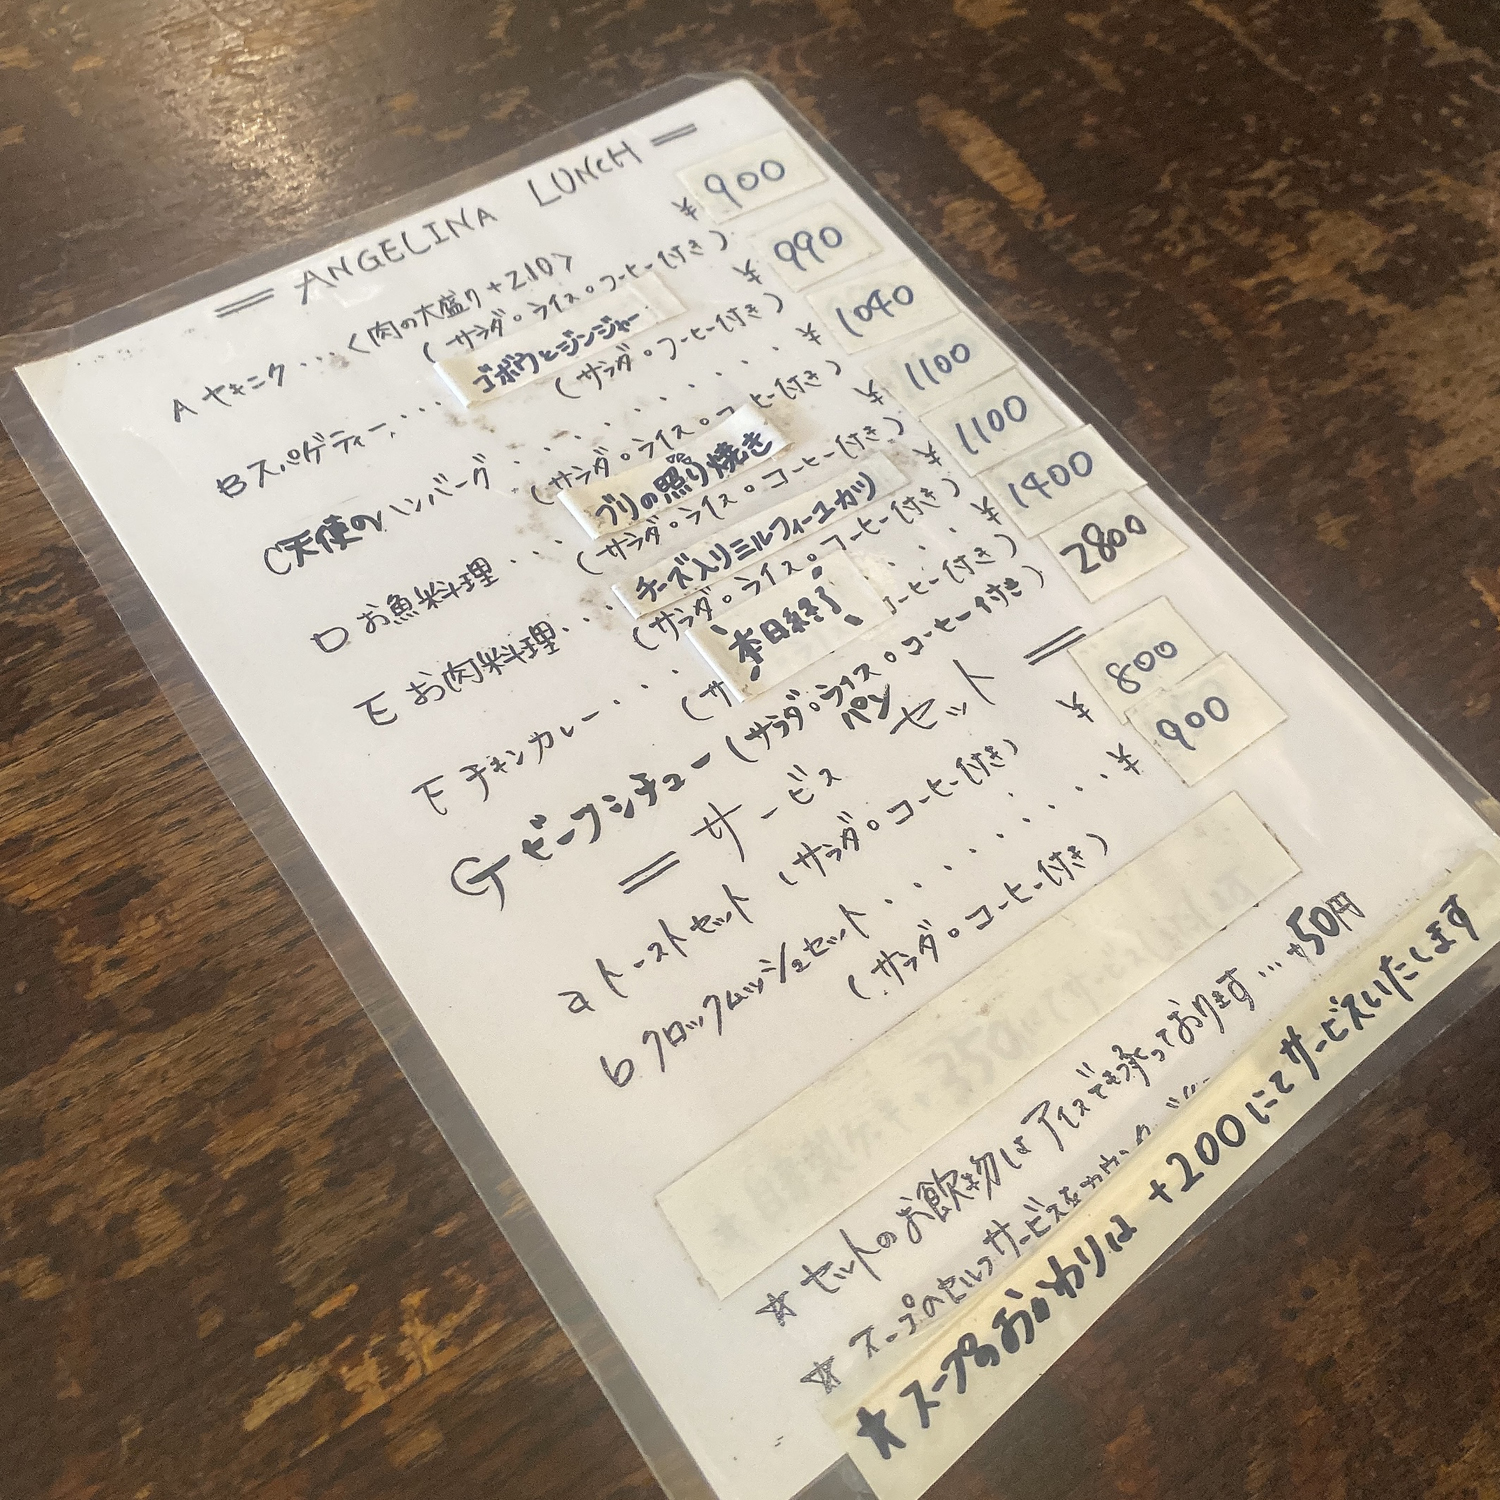 = ANGELINA LUNCH =
A ヤキニク ...〈肉の大盛り+210〉 ¥ 900
(サラダ。ライス。コーヒー付き)
B スパゲティー .... ゴボウとジンジャー ¥ 990
(サラダ。コーヒー付き)
C 天使のハンバーグ ........ ¥ 1040
(サラダ。ライス。コーヒー付き)
D お魚料理 ... ブリの照り焼き ¥ 1100
(サラダ。ライス。コーヒー付き)
E お肉料理... チーズ入りミルフィーユカツ ¥ 1100
(サラダ。ライス。コーヒー付き)
F チキンカレー ... 本日終了 .. ¥ 1400
(サ コーヒー付き)
G ビーフシチュー (サラダ。ライス。コーヒー付き) 2800
パン
= サービス セット =
a トーストセット (サラダ。コーヒー付き) ¥ 800
b クロックムッシュセット ........ ¥ 900
(サラダ。コーヒー付き)
☆ セットのお飲物は アイスでも承っております ... +50円
☆ スープのセルフサービスを
★ スープのおかわりは +200にてサービスいたします